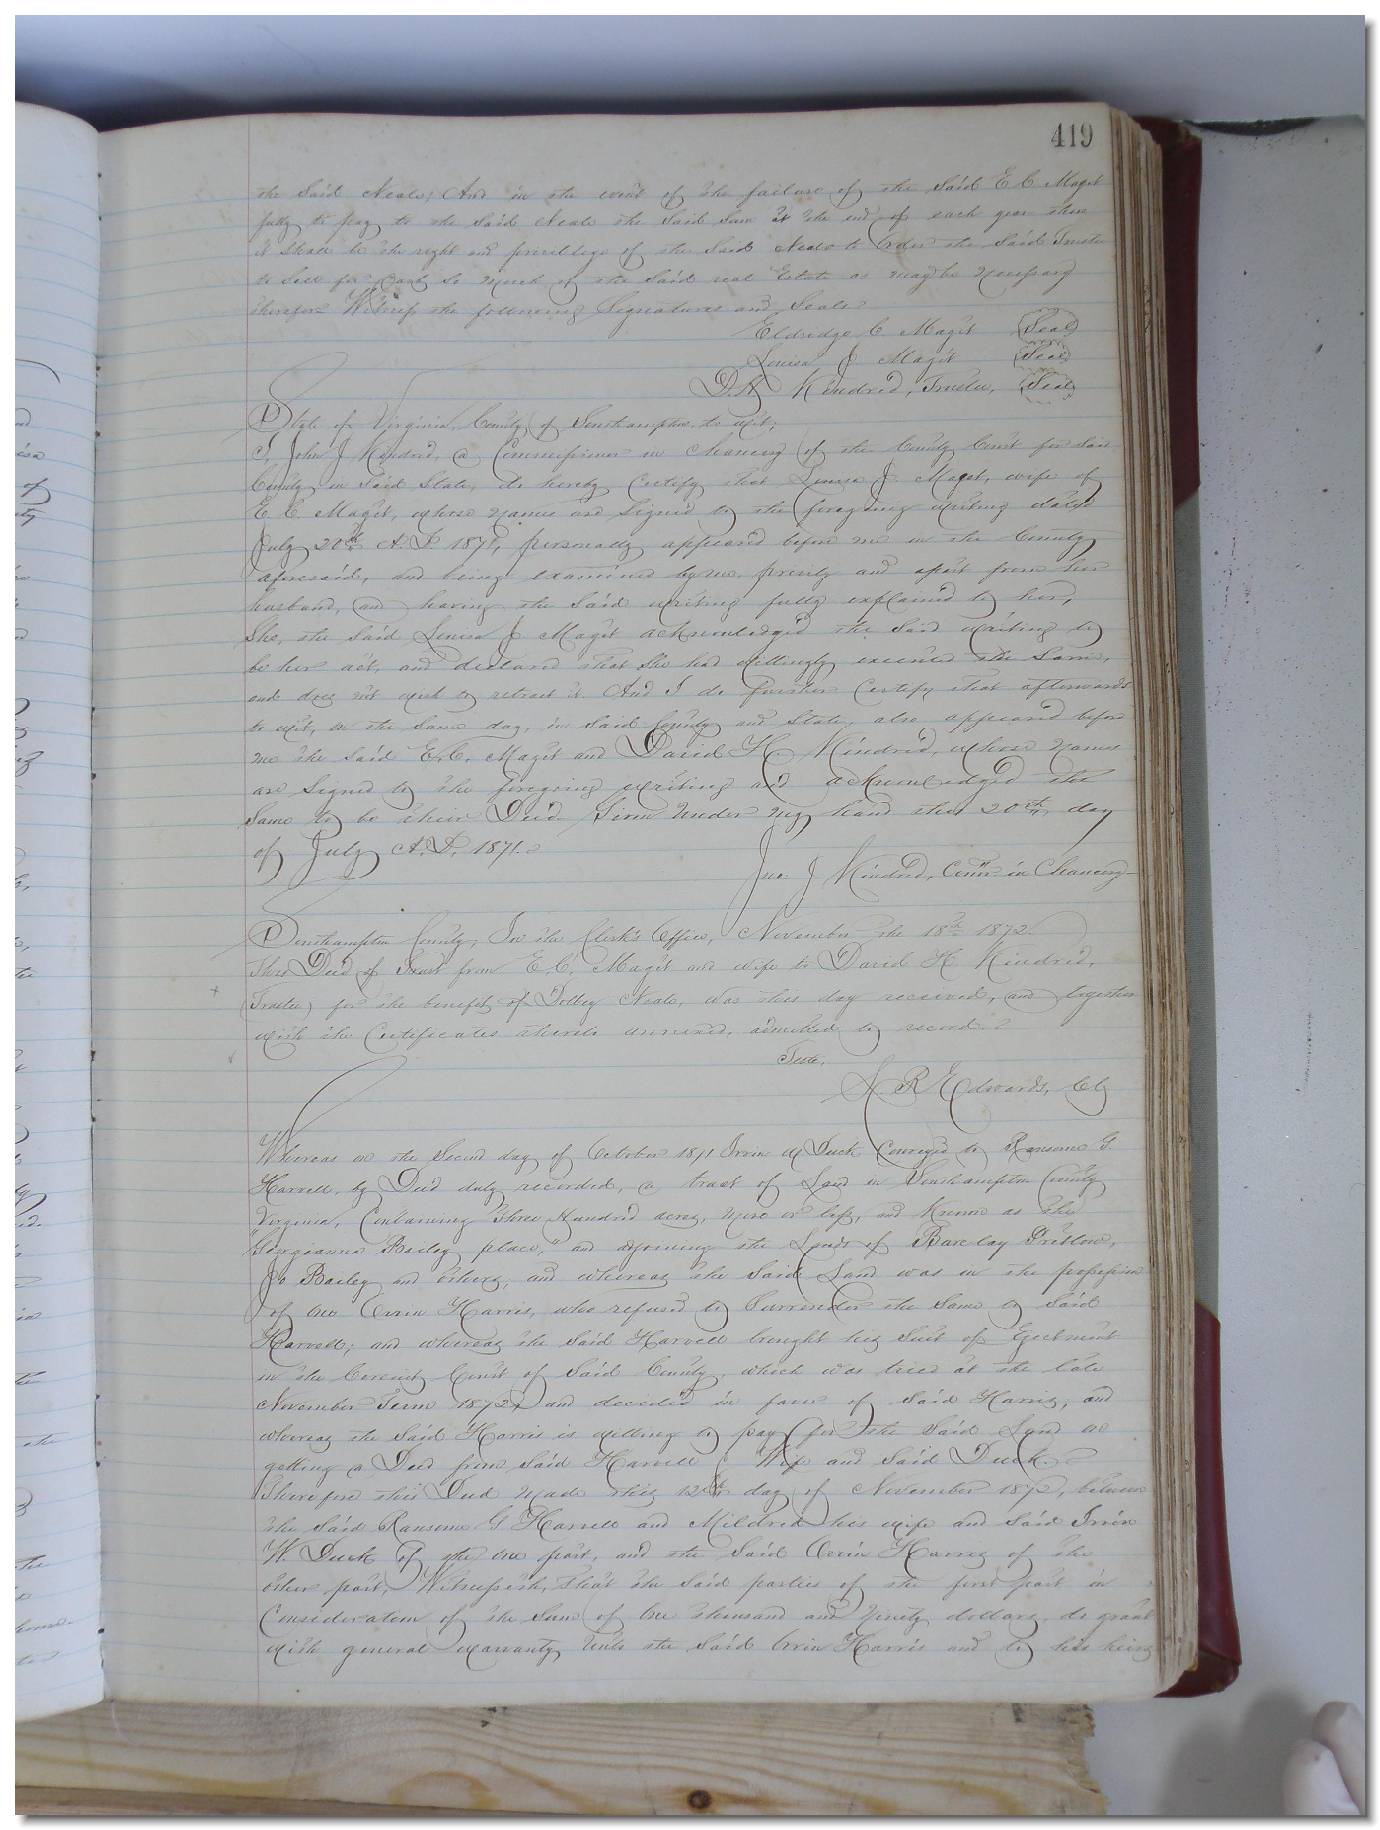 419
the Said Neale; And in the event of the failure of the Said E C Maget
fully to pay to the Said Neale the Said Sum at the end of each year then
it Shall be the right and priviledge of the Said Neale to Order the Said Trustee
to Sell for Cash So much of the Said real Estate as may be Necessary
therefor. Witness the following Signatures and Seals
Eldridge C Maget Seal
Louisa J Maget Seal
D. H Kindred, Trustee, Seal
State of Virginia, County of Southampton, to wit;
I, John J Kindred, a Commissioner in Chancery of the County Court for Said
County in Said State, do hereby Certify that Louisa J. Maget, wife of
E. C. Maget, whose Names are Signed to the foregoing writing dated
July 20th A. D 1871, personally appeared before me in the County
aforesaid, and being examined by me privily and apart from her
husband, and having the Said writing fully explained to her,
She, the Said Louisa J Maget acknowledged the Said writing to
be her act, and declared that She had willingly executed the Same,
and does not wish to retract it. And I do further Certify that afterwards
to wit, on the Same day, in Said County and State, also appeared before
me the Said E. C. Maget and David H. Kindred, whose Names
are Signed to the foregoing writing and acknowledged the
Same to be their Deed Given Under My hand this 20th day
of July A. D. 1871.
Jno. J Kindred, Comr in Chancery
Southampton County, In the Clerk's Office, November the 18th 1872.
This Deed of Trust from E. C. Maget and wife to David H Kindred,
Trustee, for the benefit of Dolley Neale, was this day received, and together
with the Certificates thereto annexed, admitted to record
Teste,
L. R Edwards, Clk
Whereas on the Second day of October 1871 Irvin W Duck Conveyed to Ransome G
Harrell, by Deed duly recorded, a tract of Land in Southampton County
Virginia, Containing Three Hundred acres, more or less, and Known as the
"Georgianna Bailey place," and adjoining the Lands of Barclay Pretlow,
Jo Bailey and others, and whereas the Said Land was in the possession
of one Orrin Harris, who refused to Surrender the Same to Said
Harrell; and whereas the Said Harrell brought his Suit of Ejectment
in the Circuit Court of Said County, which was tried at the late
November Term 1872, and decided in favor of Said Harris, and
whereas the Said Harris is willing to pay for the Said Land on
getting a Deed from Said Harrell & Wife and Said Duck.
Therefore this Deed made this 12th day of November 1872, between
the Said Ransome G Harrell and Mildred his wife and Said Irvin
W. Duck of the one part, and the Said Orrin Harris of the
other part, Witnesseth, that the Said parties of the first part in
Consideration of the Sum of One thousand and Ninety dollars, do grant
with general warranty Unto the Said Orrin Harris and to his heirs